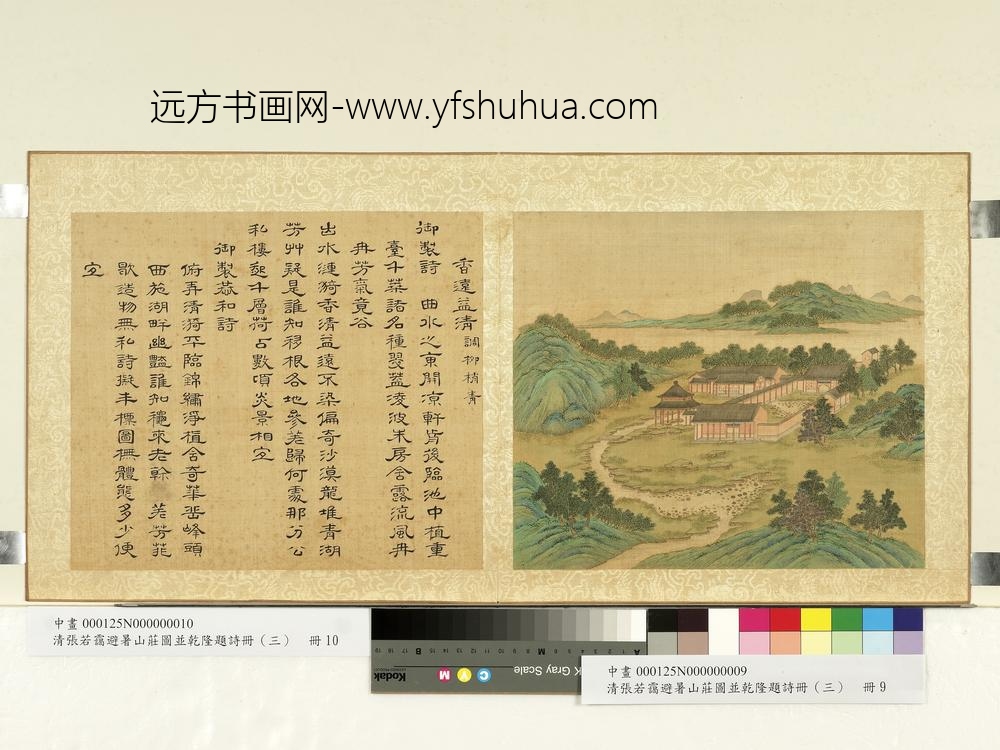 远方书画网-www.yfshuhua.com
香遠益清調柳梢青
御製詩 曲水之東開涼軒皆後臨池中植重
臺千葉諸名種翠蓋凌波朱房含露流風冉
冉芳氣竟谷
出水漣漪香清益遠不染偏奇沙漠龍堆青湖
芳艸疑是誰知移根各地參差歸何處那分公
私樓起千層荷占數頃炎景相宜
御製恭和詩
俯再清漪平臨錦繡淨植含奇華岳峰頭
西施湖畔幽豔誰知 來老幹 芳菲
歌造物無私詩擬丰標圖橅體態多少便
宜
中畫 000125N000000010
清張若靄避暑山莊圖並乾隆題詩冊（三） 冊 10
Kodak
K Gray Scale
C
Y
M
A
M
B
中畫 000125N000000009
清張若靄避暑山莊圖並乾隆題詩冊（三） 冊 9